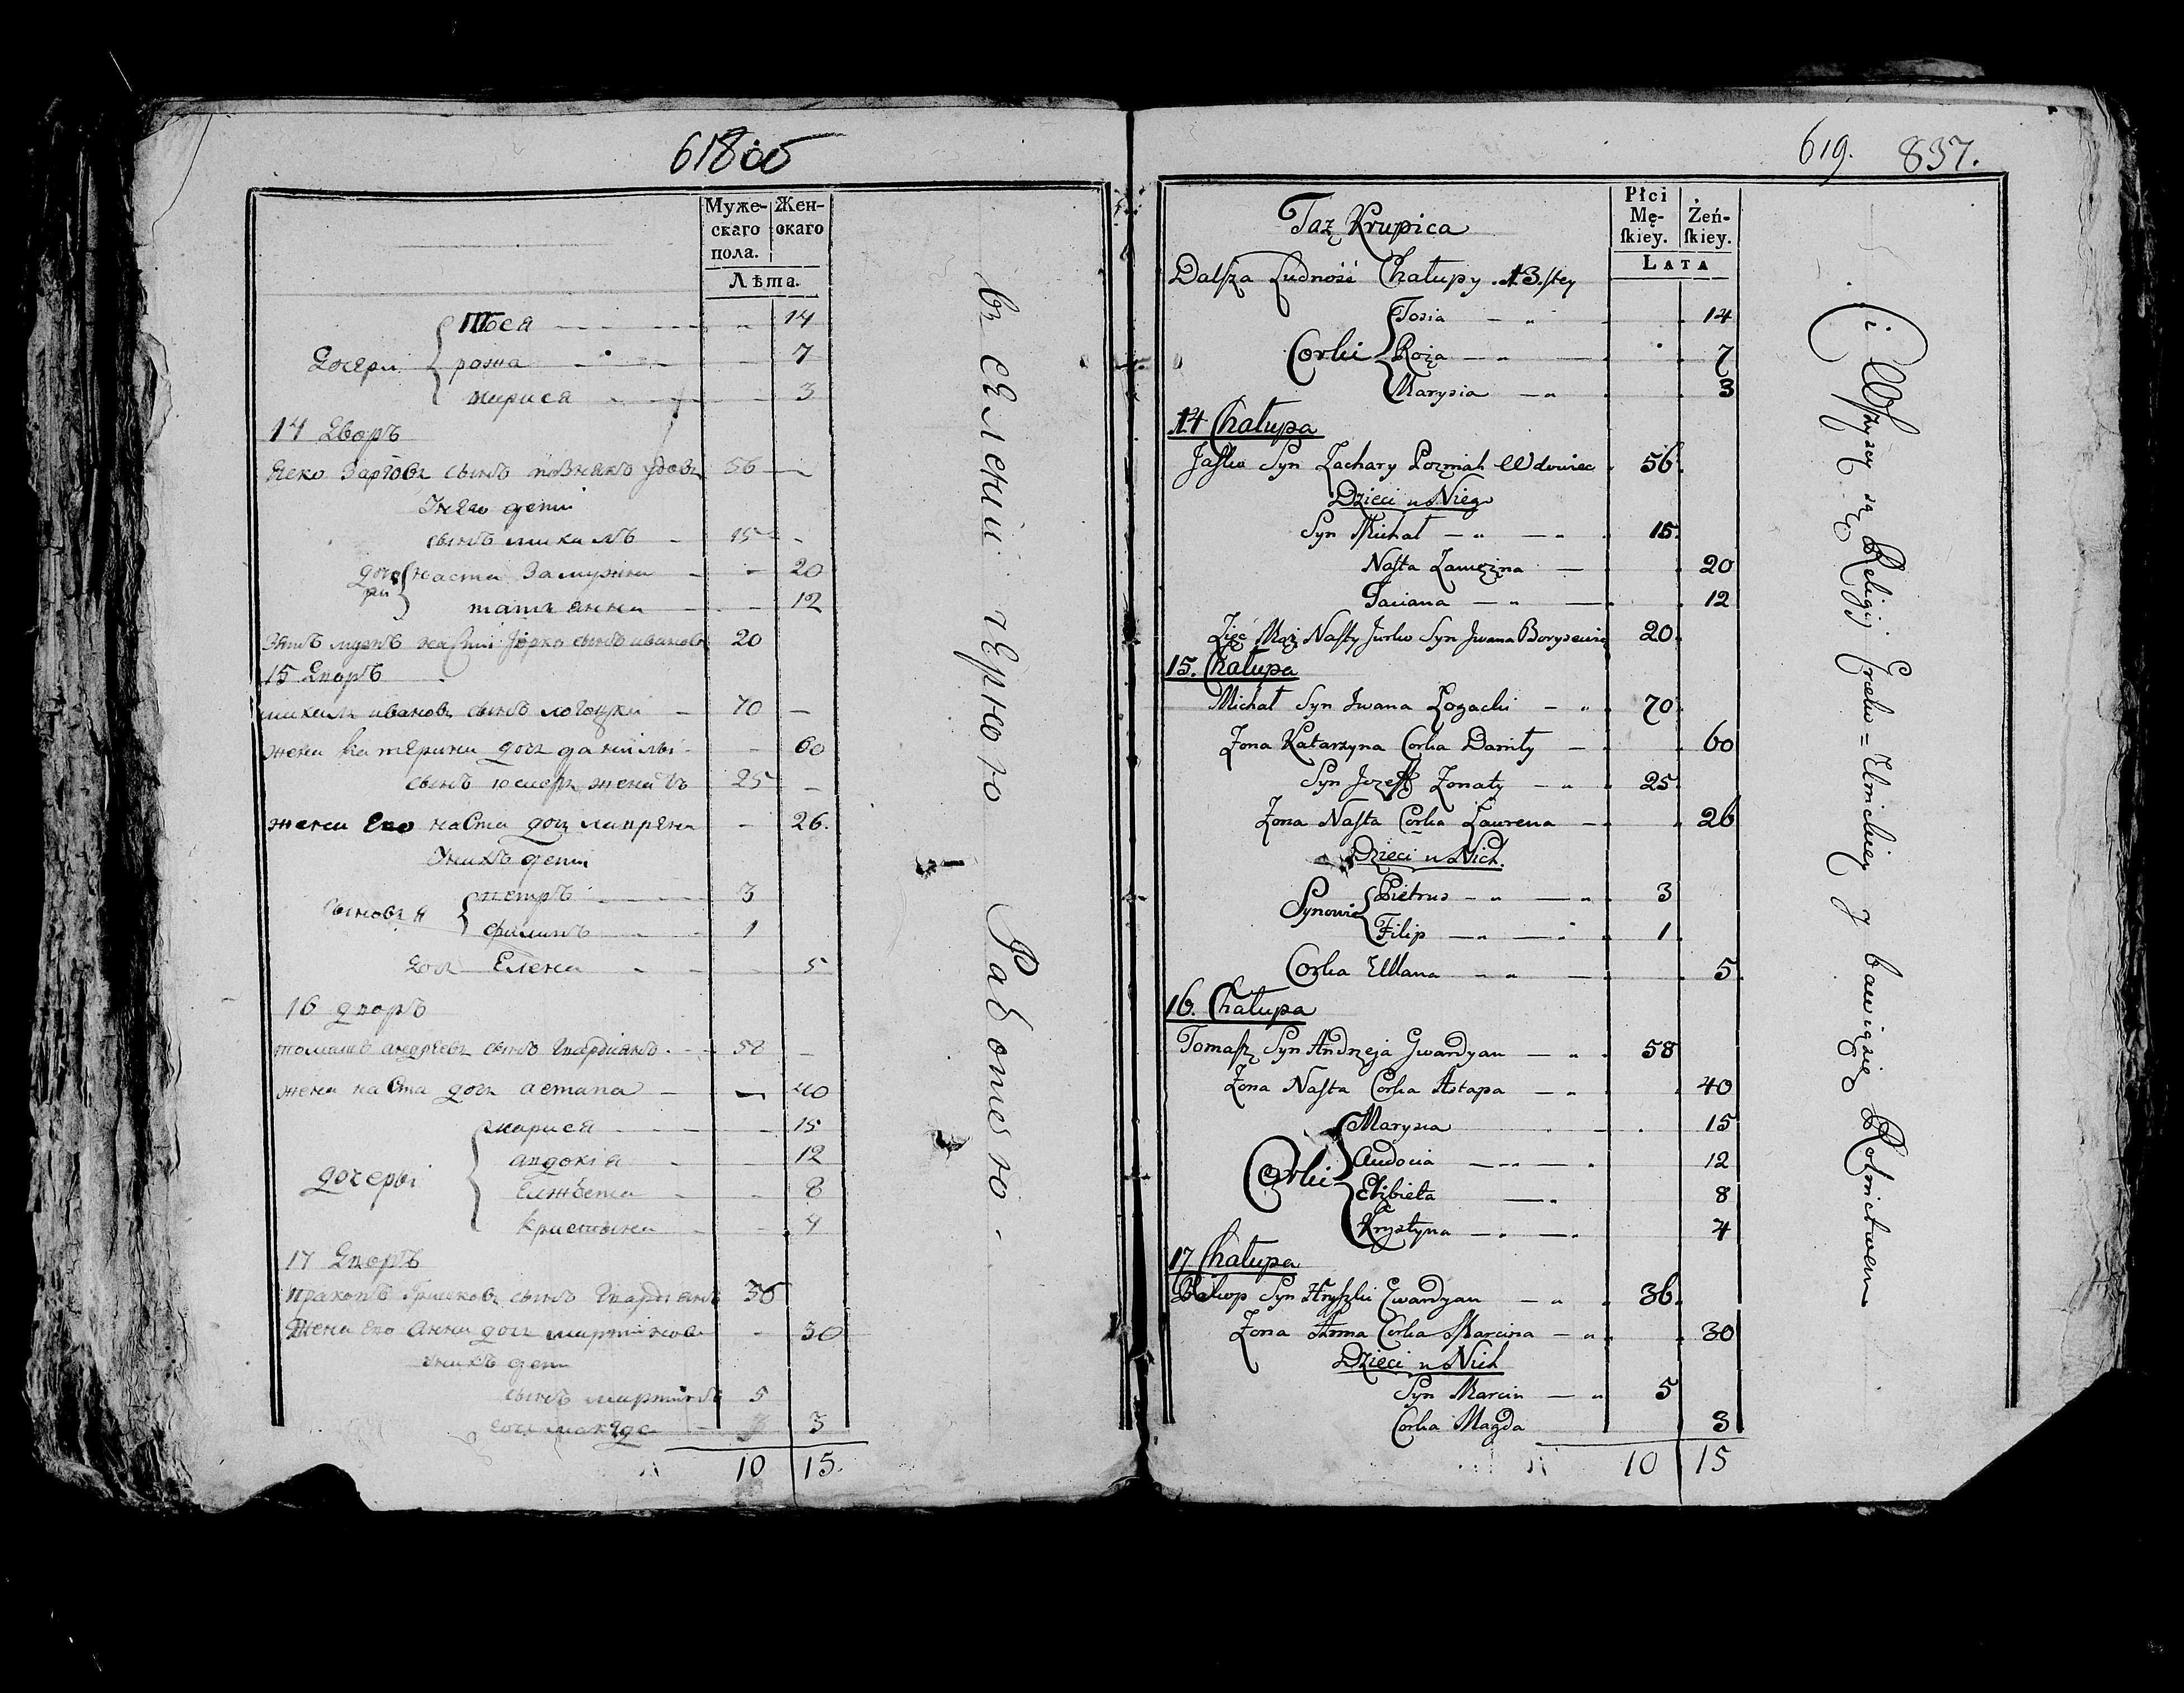 618 об
Муже-
скаго
пола.
Жен-
скаго
Лѣта.
Тося 14
Дочери рожа 7
мариса 3
14 Дворъ
сынъ познякъ 56
У него дети
сынъ михалъ 15
наста замужна 20
татьянна 12
мужъ насти Юрко сынъ иванов 20
15 Дворъ
михалъ иванов сынъ логоцки 70
жена катерина дочь данилы 60
сынъ жена тъ 25
жена его наста дочь лаврена 26.
У нихъ дети
сыновя петръ 3
филипъ 1
дочь Елена 5
16 дворъ
томашъ андреев сынъ гвардиянъ 58
жена наста дочь астапа 40
мариса 15
авдокія 12
дочеры елжбета 8
кристына 4
17 Дворъ
пракопъ гришков сынъ гвардіянъ 36
Жена его анна дочь мартинова 30
у нихъ дети
сынъ мартинъ 5
дочь магда 3
10 15.
въ селеніи чернюю Работою.
619. 837.
Płci
Mę-
ſkiey.
Żeń-
ſkiey.
LATA
Taz Krupica
Dalſza Ludność Chałupy 13.ſtey
Tosia 14
Corki Roża 7
Marysia 3
14 Chałupa
Jaſko Syn Zachary Pozniak Wdowiec 56
Dzieci u Niego
Syn Michał 15
Naſta Zamężna 20
Taciana 12
Zięć Mąż Naſty Jurko Syn Jwana Borysewicz 20
15. Chałupa
Michał Syn Jwana Łogacki 70
Zona Katarzyna Corka Daniły 60
Syn Jozeff Zonaty 25
Zona Naſta Corka Laurena 26
Dzieci u Nich.
Synowie Pietrus 3
Filip 1
Corka Ullana 5
16. Chałupa
Tomaſz Syn Andrzeja Gwardyan 58
Zona Naſta Corka Astapa 40
Maryna 15
Audocia 12
Corki Elżbieta 8
Krystyna 4
17 Chałupa
Prokop Syn Hryſzki Gwardyan 36
Zona Anna Corka Marcina 30
Dzieci u Nich
Syn Marcin 5
Corka Magda 3
10 15
i Wſzyscy są Religij Græko=Unickiey y bawią się Rolnictwem